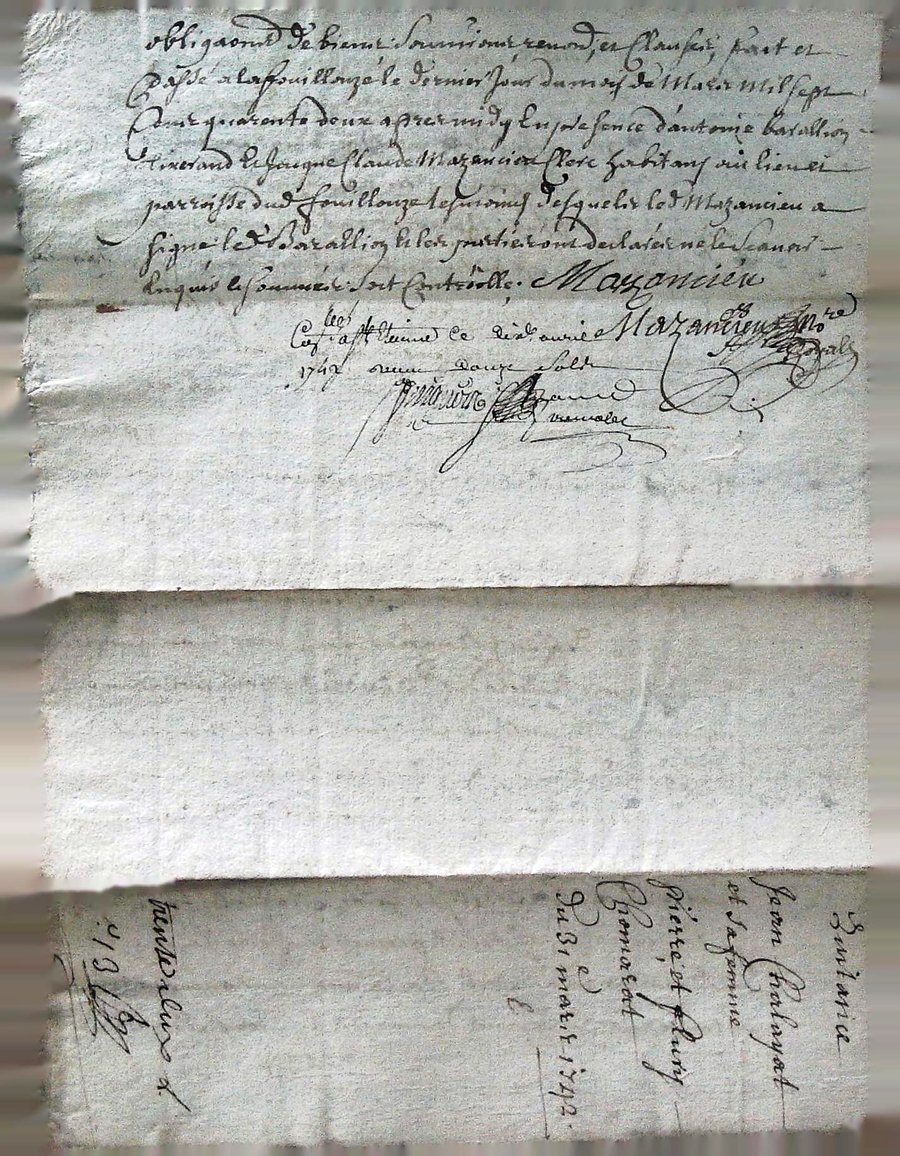 obligaons de biens soumions renons, et clauses, fait et
Passé a la fouillouze le dernier jour du mois de Mars mil sept
Cens quarente deux appres midy En présence d'antoine barallion
tixerand Et Jacque Claude Mazancieu Clerc habitans au lieu et
parroisse dud fouillouze tesmoins desquels led Mazancieu a
signé led Barallion Et les partiés ont declarés ne le scavoir
Enquis et sommés. soit Controllé. Mazancieu
Mazancieu Nore
Royal
st Etienne ce dixe avril
1742 recu douze sols
Quittance
Jean Chalayat
et sa femme
pierre, et fleury
Chomarat
du 31e mars 1742.
trente deux